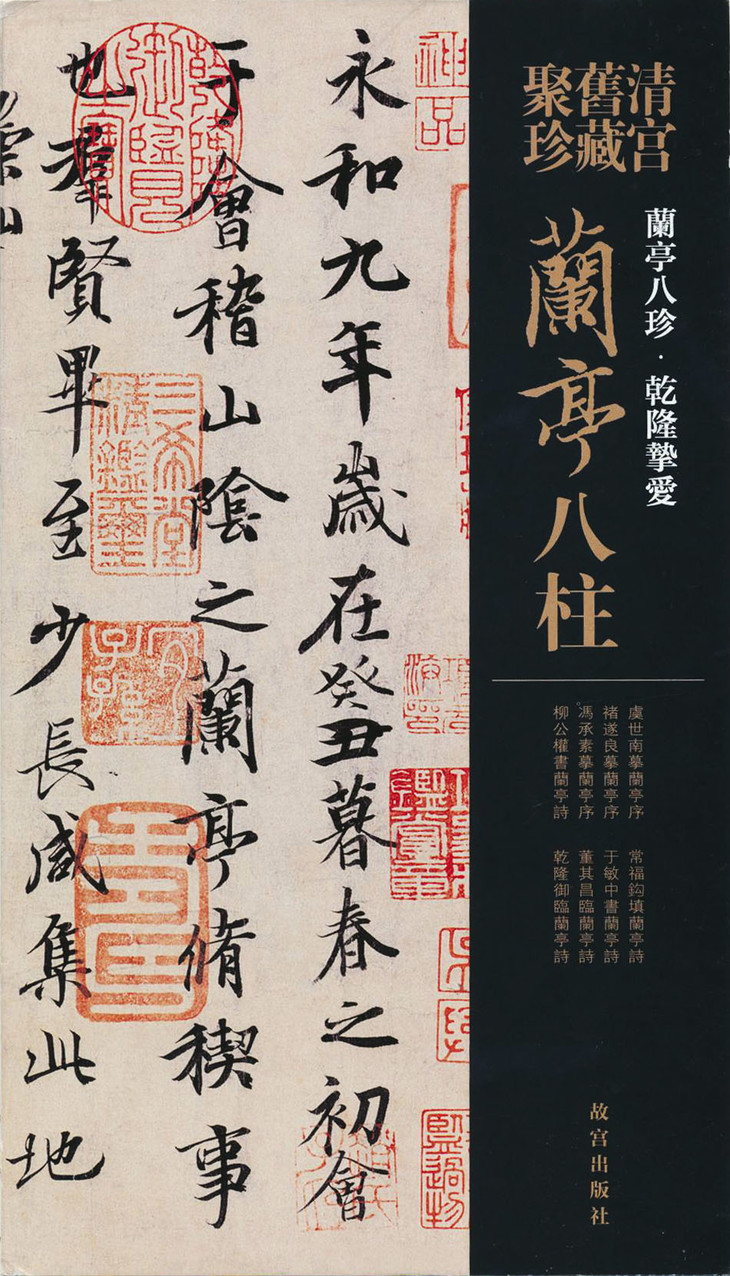 清宫
舊藏
聚珍
蘭亭八珍·乾隆摯愛
蘭亭八柱
虞世南摹蘭亭序
褚遂良摹蘭亭序
馮承素摹蘭亭序
柳公權書蘭亭詩
常福鈎填蘭亭詩
于敏中書蘭亭詩
董其昌臨蘭亭詩
乾隆御臨蘭亭詩
故宫出版社
神品
永和九年歲在癸丑暮春之初會
于會稽山陰之蘭亭脩稧事
也羣賢畢至少長咸集此地
三希堂
精鑑璽
宜子孫